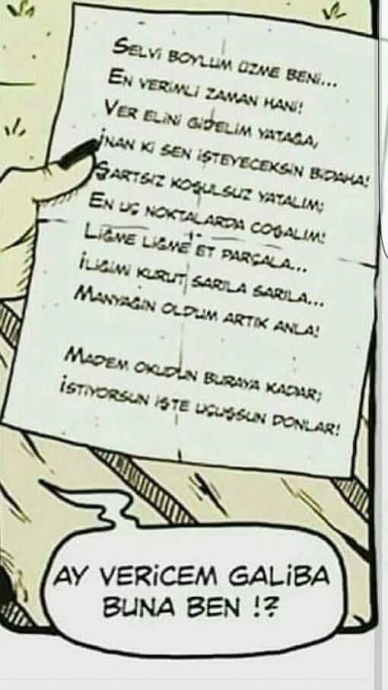 SELVİ BOYLUM ÜZME BENİ...
EN VERİMLİ ZAMAN HANİ!
VER ELİNİ GİDELİM YATAĞA,
İNAN Kİ SEN İSTEYECEKSİN BİDAHA!
ŞARTSIZ KOŞULSUZ YATALIM;
EN UÇ NOKTALARDA COŞALIM!
LİĞME LİĞME ET PARÇALA...
İLİĞİMİ KURUT SARILA SARILA...
MANYAĞIN OLDUM ARTIK ANLA!
MADEM OKUDUN BURAYA KADAR;
İSTİYORSUN İŞTE UÇUŞSUN DONLAR!
AY VERİCEM GALİBA
BUNA BEN !?